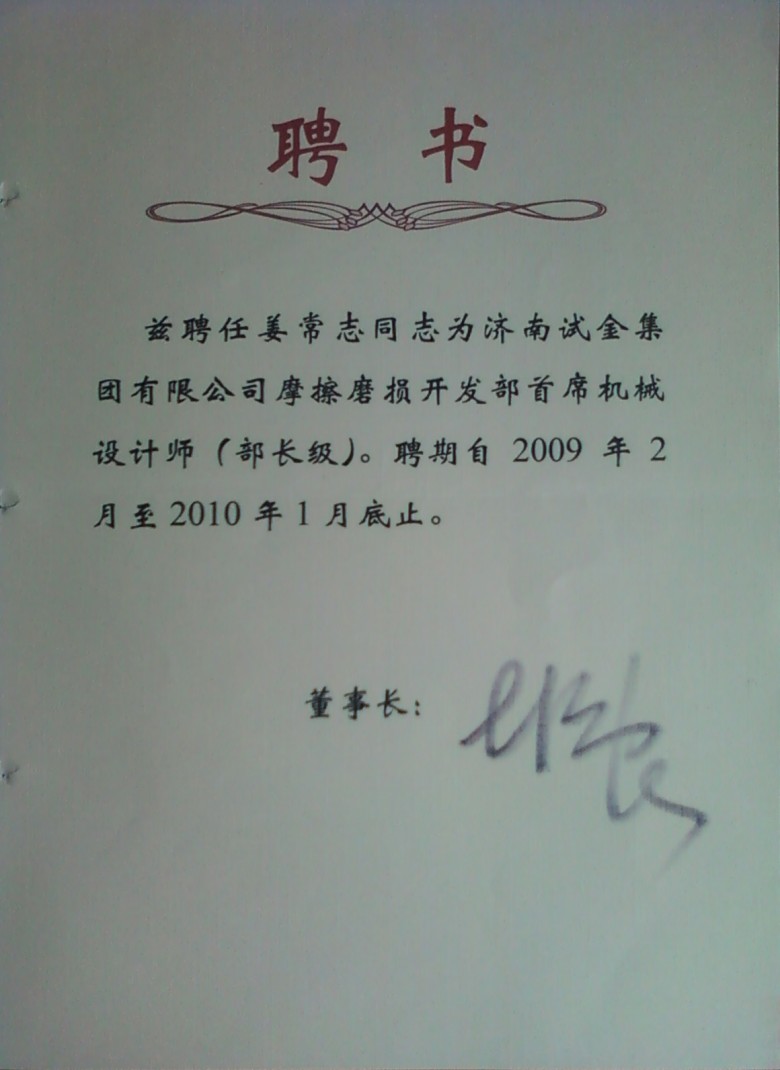 聘 书
兹聘任姜常志同志为济南试金集
团有限公司摩擦磨损开发部首席机械
设计师（部长级）。聘期自 2009 年 2
月至 2010 年 1 月底止。
董事长：